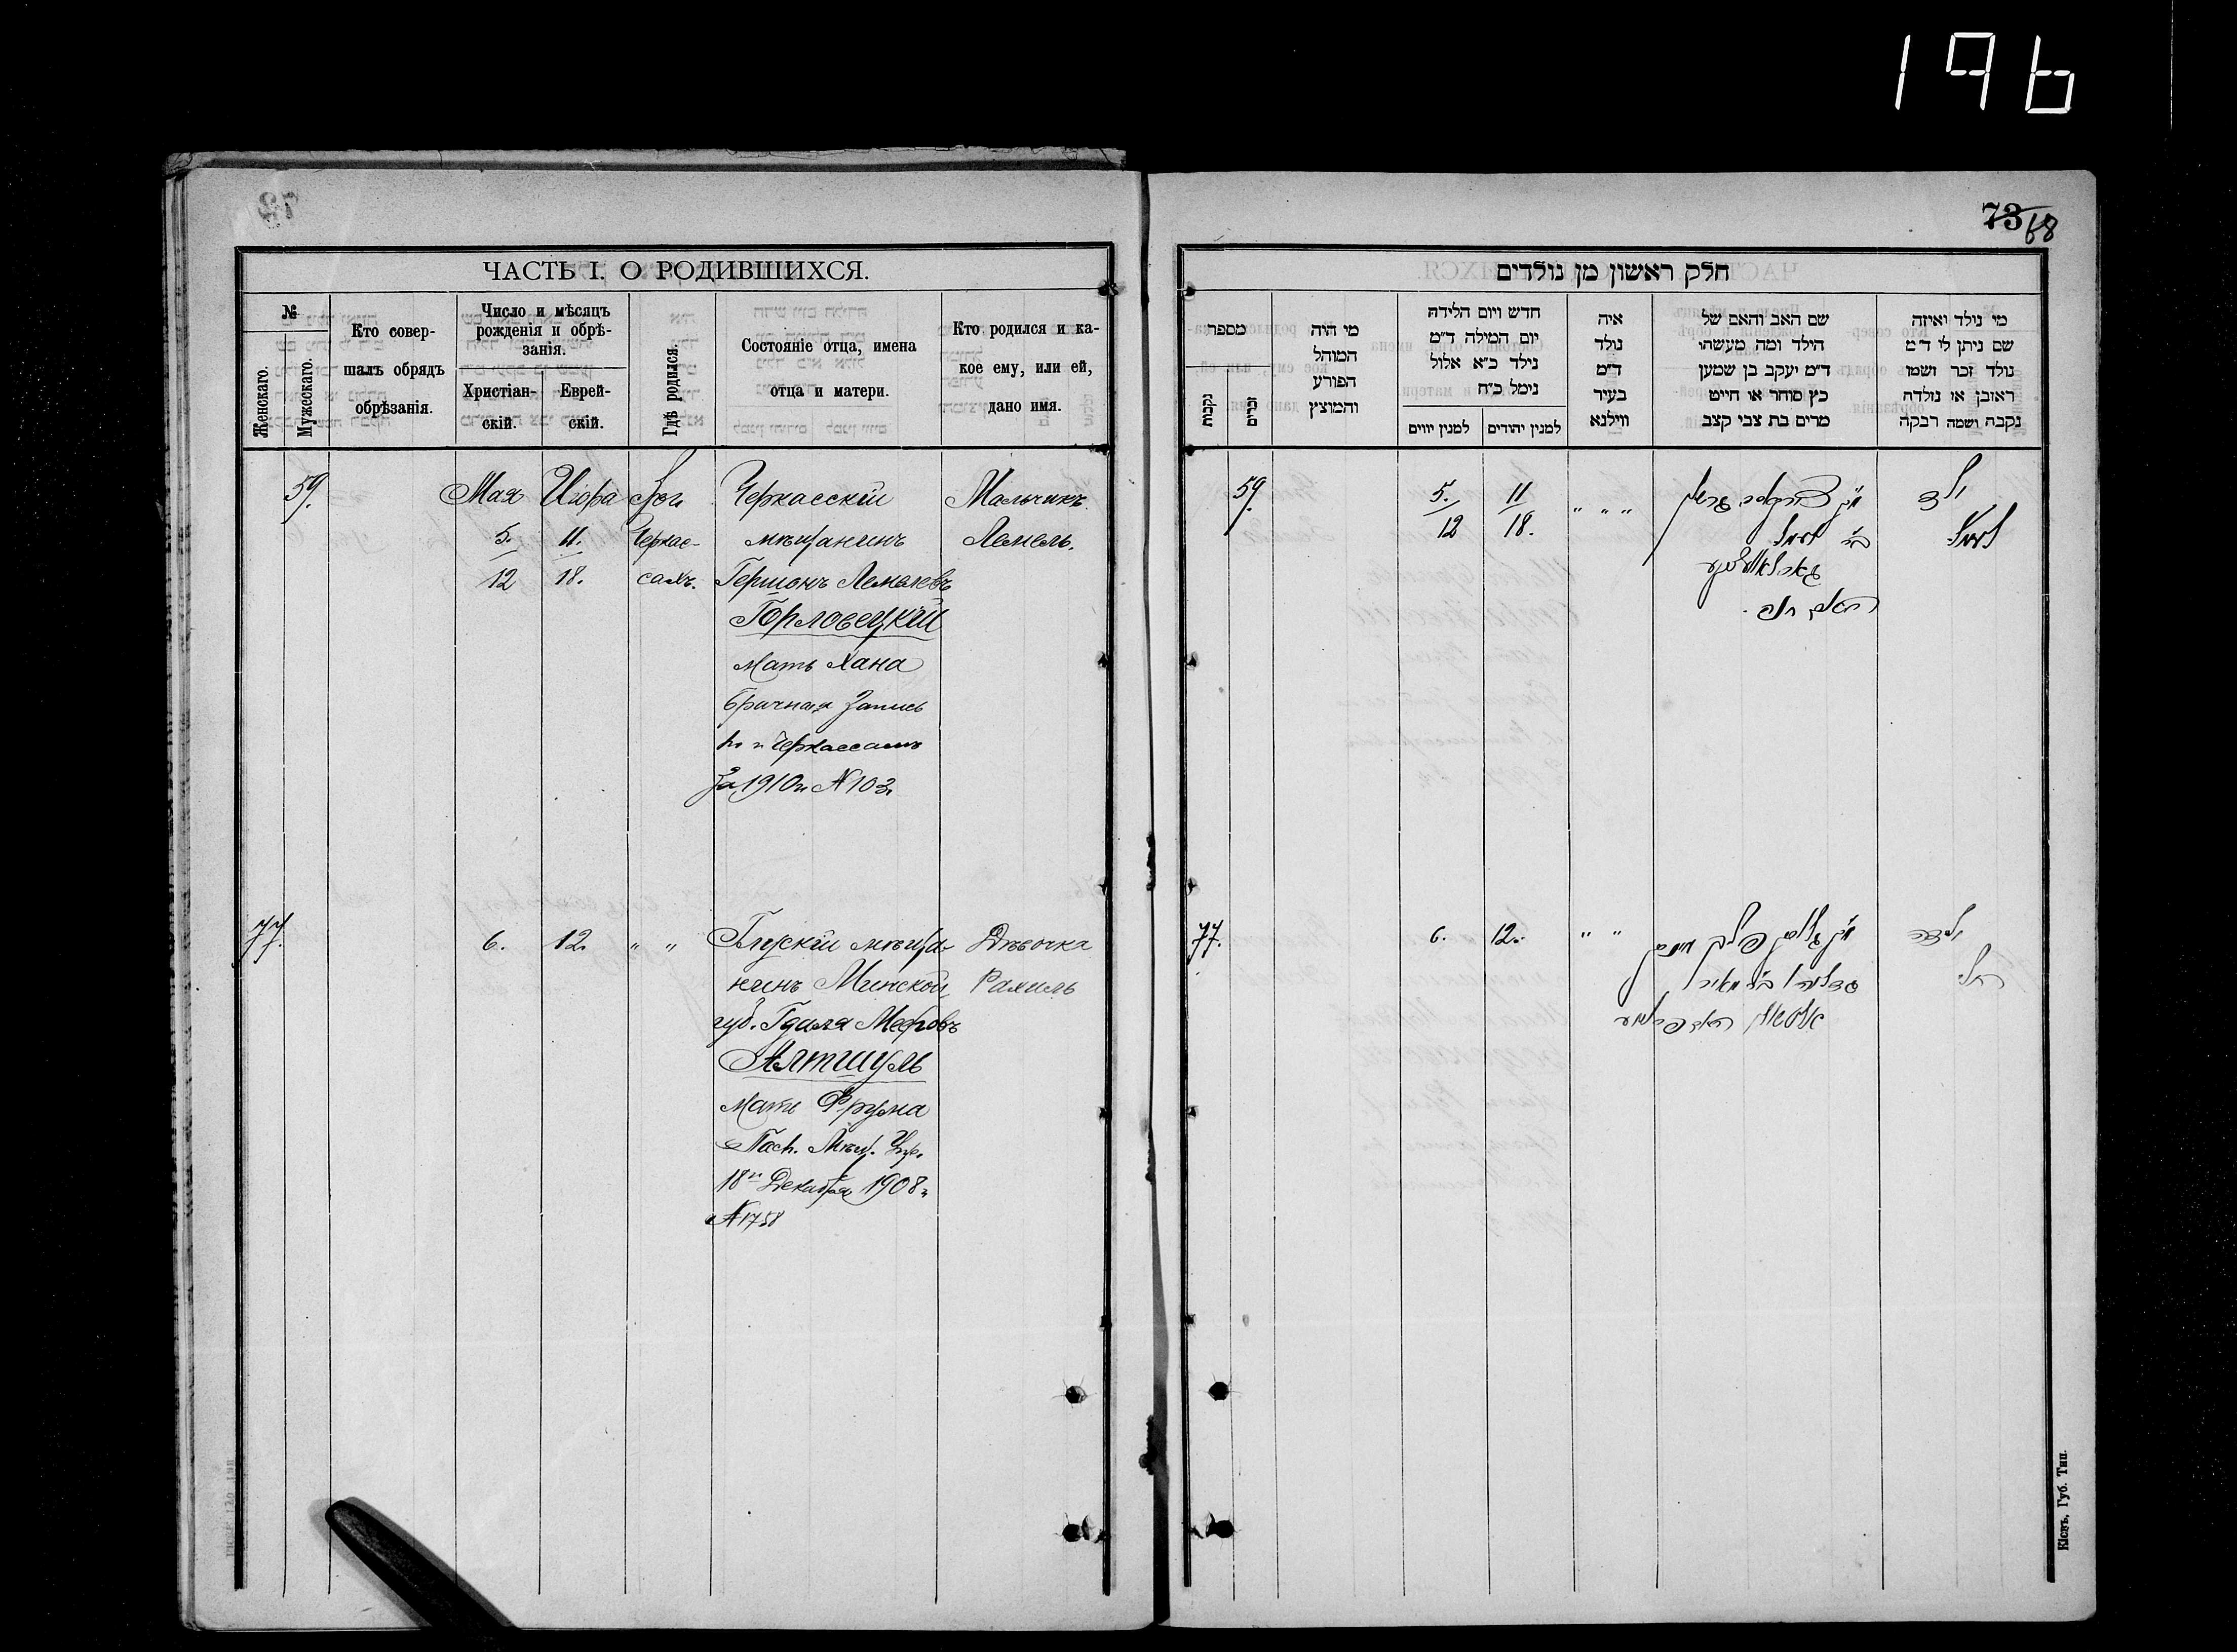 196
73 68
ЧАСТЬ I. О РОДИВШИХСЯ.
№
Женскаго.
Мужескаго.
Кто совер-
шалъ обрядъ
обрѣзанія.
Число и мѣсяцъ
рожденія и обрѣ-
занія.
Христіан-
скій.
Еврей-
скій.
Гдѣ родился.
Состояніе отца, имена
отца и матери.
Кто родился и ка-
кое ему, или ей,
дано имя.
59. Мая Ияра Черкасскій Мальчикъ
5. 11. Черкас- мѣщанинъ Лемель.
12 18. сахъ. Гершонъ Лемелевъ
Горловецкій
Мать Хана
брачная запись
по г. Черкассамъ
За 1910 г. № 103.
77. 6. 12. " " мѣща- Дѣвочка
нинъ Минской Рахиль
губ. Гдаля Мееровъ
Алтшуль
Мать Фрума
Пасп. Мѣщ. Упр.
18 Декабря 1908 г.
№ 1758
חלק ראשון מן נולדים
מספר
נקבות
זכרים
מי היה
המוהל
הפורע
והמוצץ
חדש ויום הלידה
יום המילה ד״מ
נילד כ״א אלול
נימל כ״ח
למנין יווים
למנין יהודים
איה
נולד
ד״מ
בעיר
ווילנא
שם האב והאם של
הילד ומה מעשהו
ד״מ יעקב בן שמען
כץ סוחר או חייט
מרים בת צבי קצב
מי נולד ואיזה
שם ניתן לו ד״מ
נולד זכר ושמו
ראובן או נולדה
נקבה ושמה רבקה
59. 5. 11 " " " ילד
12 18.
77. 6. 12. " " ילדה
רחל
Кіевъ, Губ. Тип.